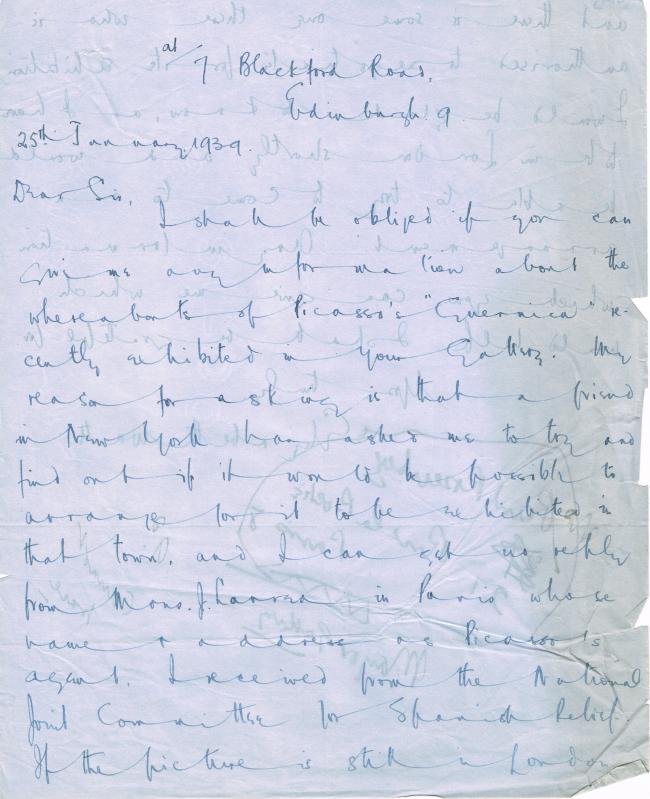 at 7 Blackford Road,
Edinburgh. 9.
25th January 1939.
Dear Sir,
I shall be obliged if you can
give me any information about the
whereabouts of Picasso's "Guernica" re-
cently exhibited in your Gallery. My
reason for asking is that a friend
in New York has asked me to try and
find out if it would be possible to
arrange for it to be exhibited in
that town, and I can get no reply
from Mons. J. Larrea in Paris whose
name & address as Picasso's
agent, I received from the National
Joint Committee for Spanish Relief.
If the picture is still in London